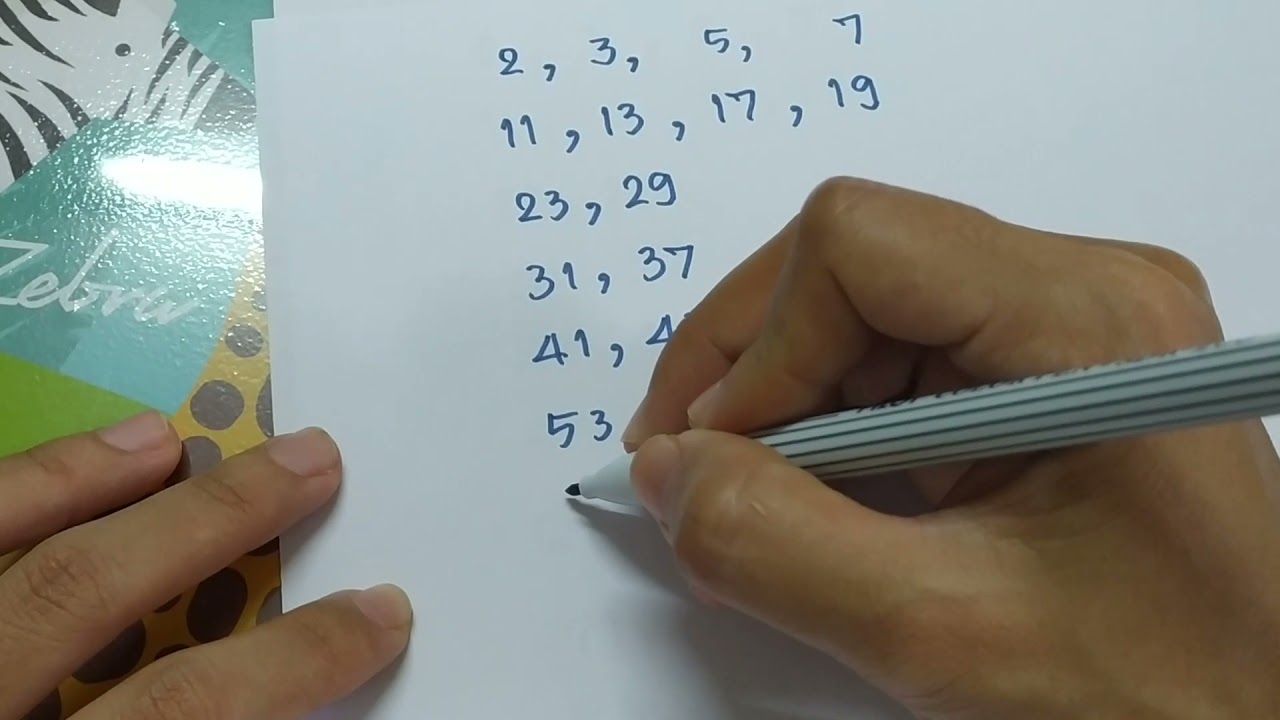 Zebra
2, 3, 5, 7
11, 13, 17, 19
23, 29
31, 37
41, 4
53